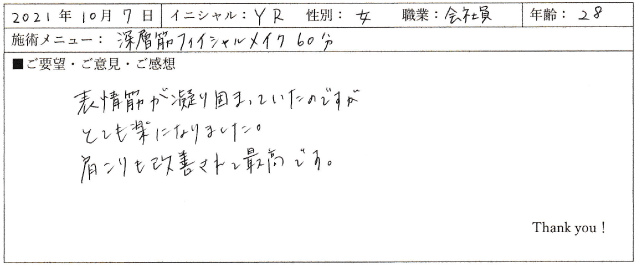 2021年 10月 7日 イニシャル：YR 性別：女 職業：会社員 年齢：28
施術メニュー：深層筋フィイシャルメイク60分
■ご要望・ご意見・ご感想
表情筋が凝り固まっていたのですが
とても楽になりました。
肩こりも改善されて最高です。
Thank you！